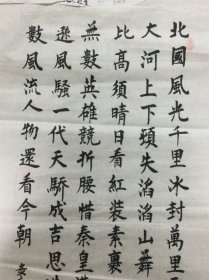 北國風光千里冰封萬里
大河上下頓失滔滔山舞
比高須晴日看紅裝素裹
無數英雄競折腰惜秦皇
遜風騷一代天驕成吉思
數風流人物還看今朝